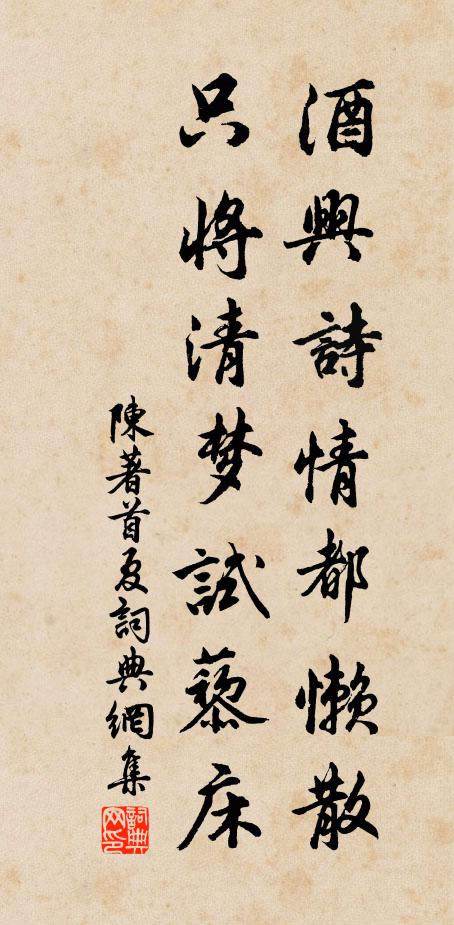 酒興詩情都懒散
只將清梦試藜床
陳著首夏詞典網集
詞典网印